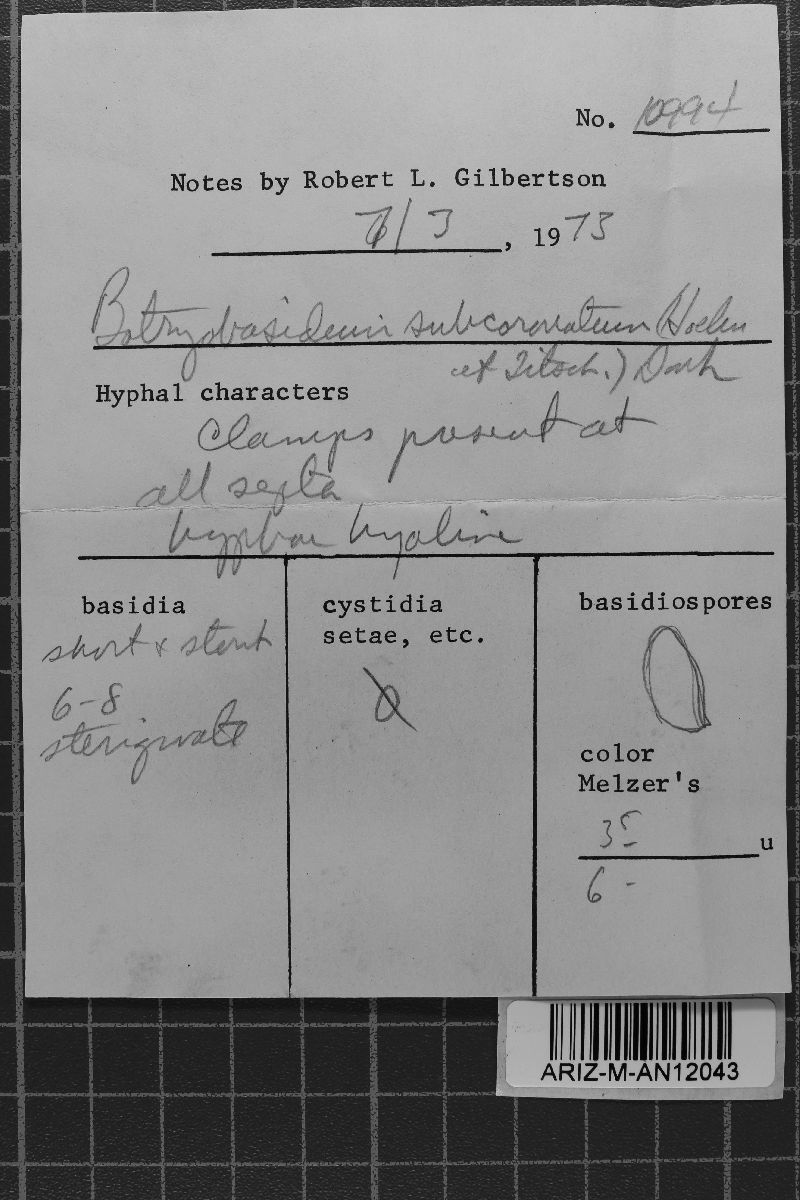 No. 10994
Notes by Robert L. Gilbertson
7/3, 1973
Botryobasidium subcoronatum (Hoehn
et Litsch.) Donk
Hyphal characters
Clamps present at
all septa
hyphae hyaline
basidia
short & stout
6-8
sterigmate
cystidia
setae, etc.
basidiospores
color
Melzer's
u
6 -
ARIZ-M-AN12043